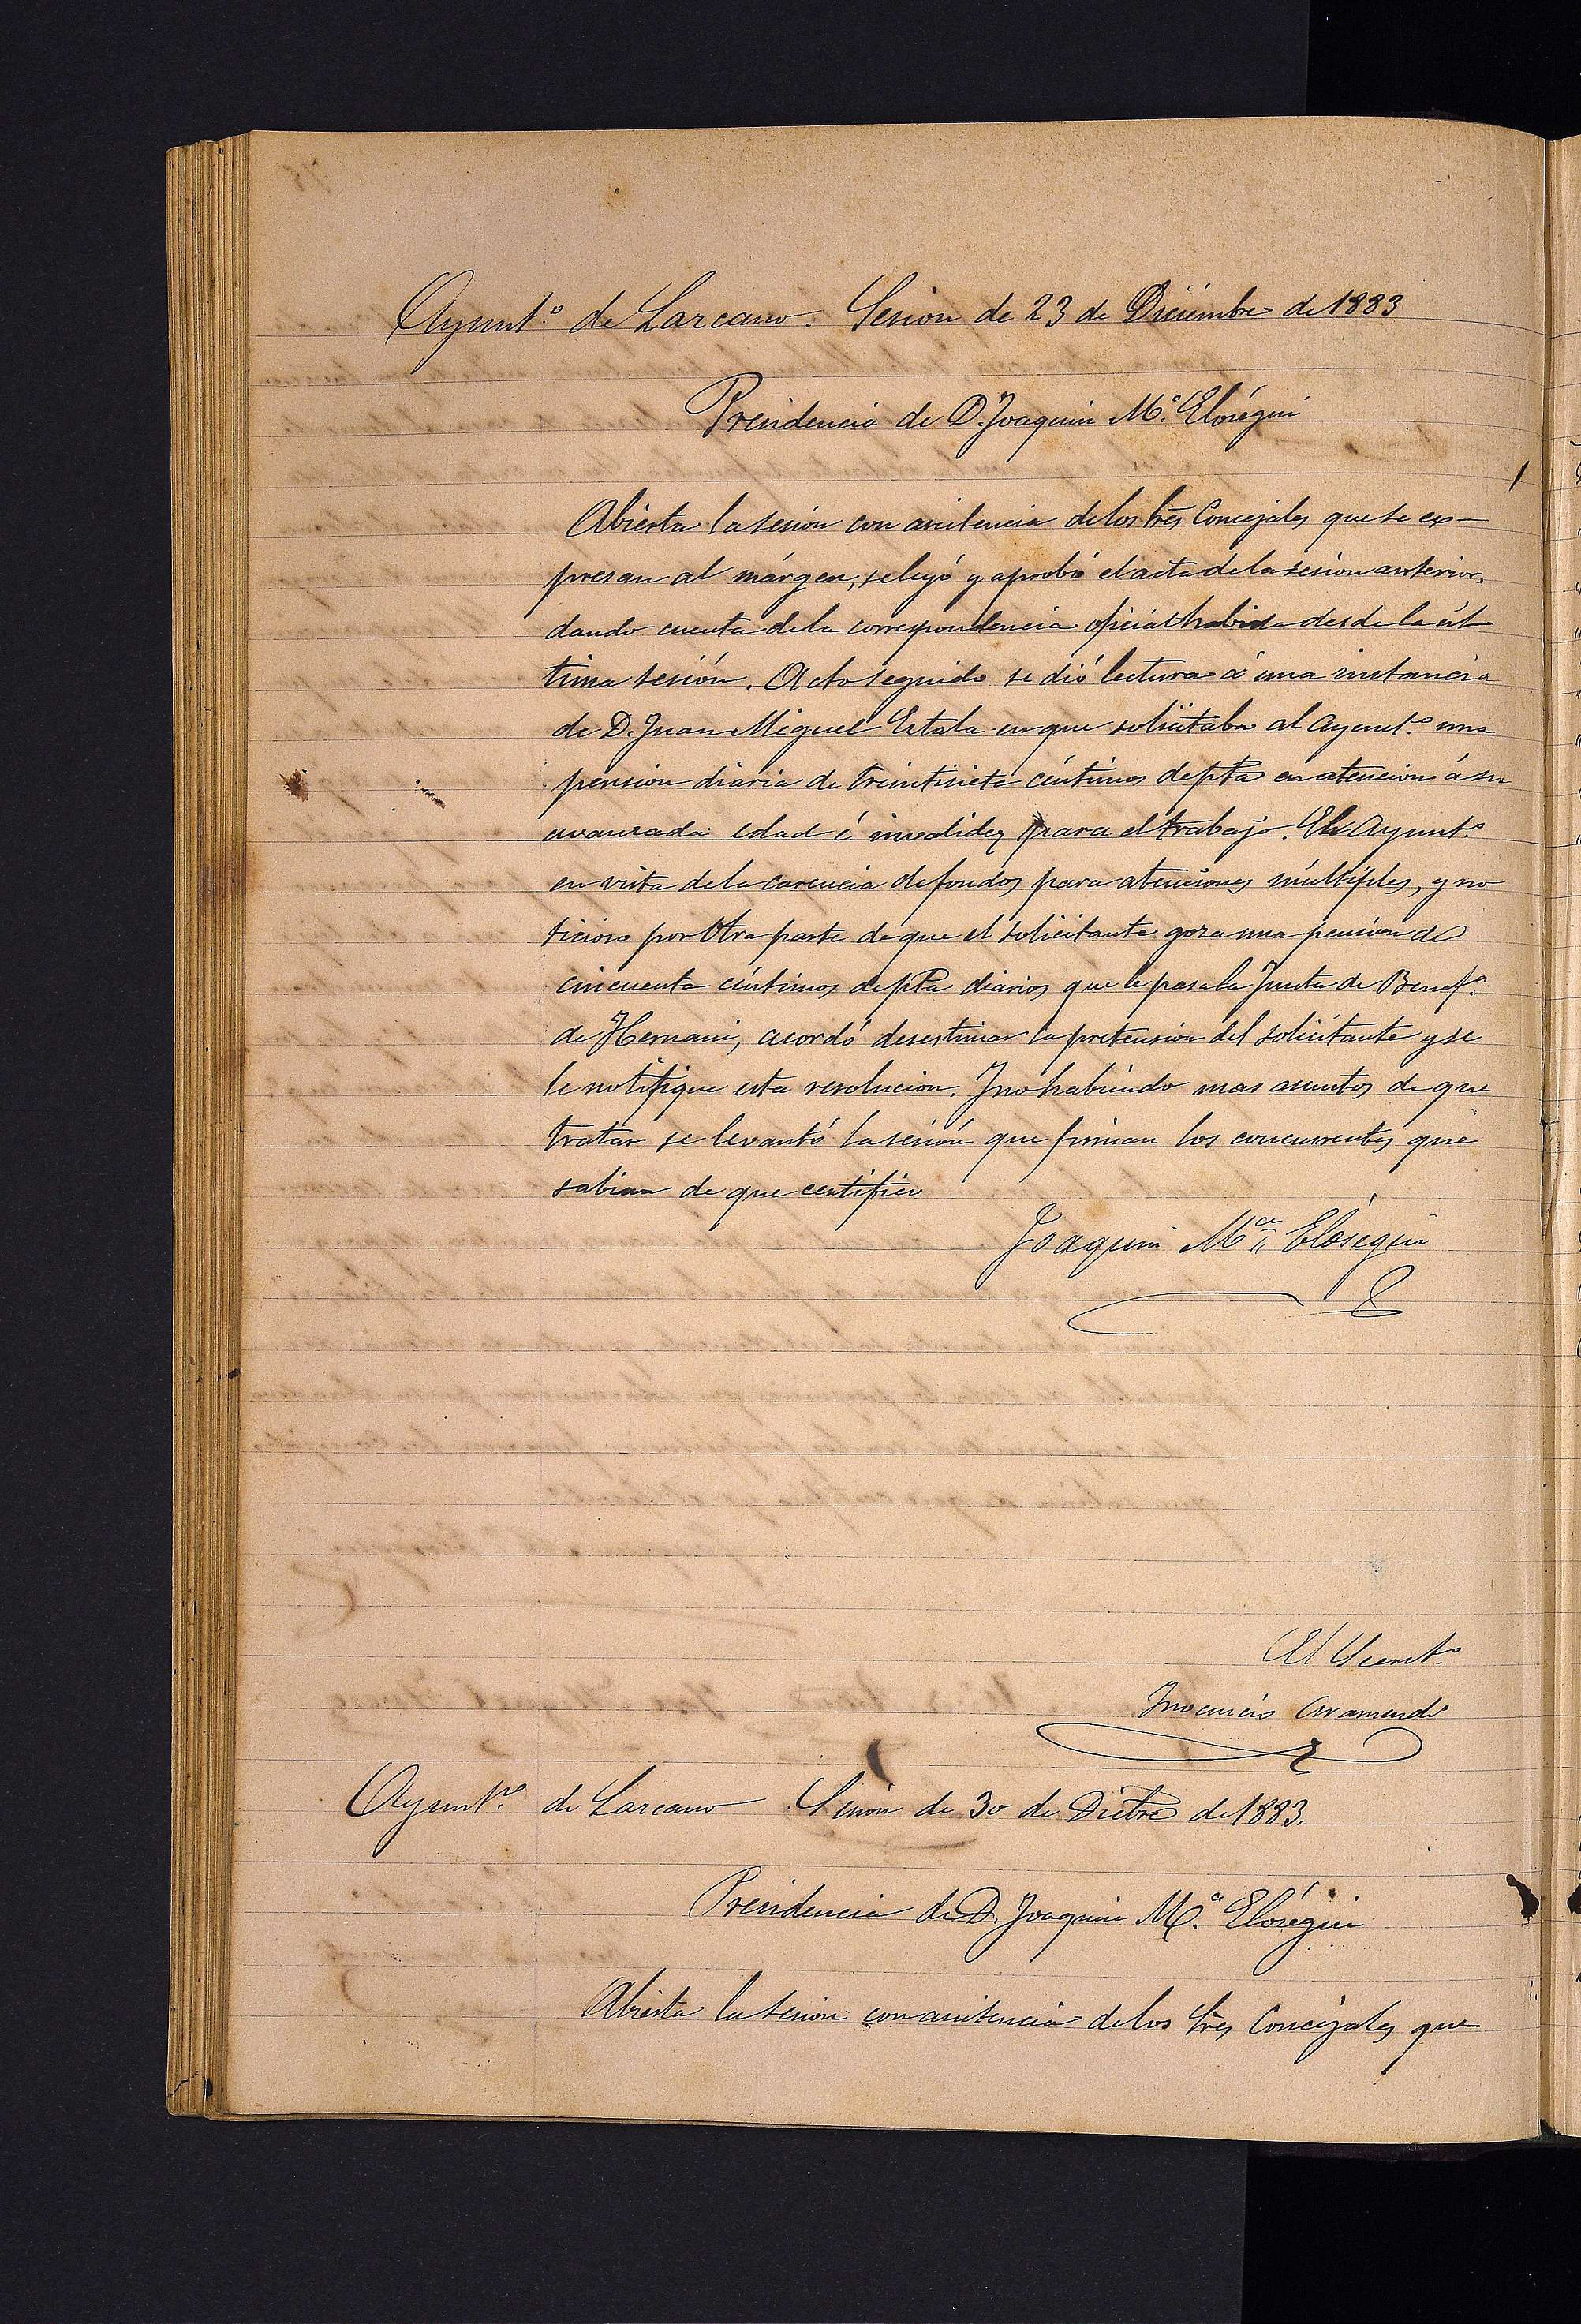 Ayunt.º de Larcano. Sesion de 23 de Diciembre de 1883
Presidencia de D. Joaquin M.ª Elósegui
Abierta la sesión con asistencia de los Sres Concejales que se ex-
presan al márgen, se leyó y aprobó el acta de la sesion anterior,
dando cuenta de la correspondencia oficial habida desde la úl-
tima sesión. Acto seguido se dió lectura á una instancia
de D. Juan Miguel Estala en que solicitaba al Ayunt.º una
pension diaria de treintisiete céntimos de pta en atencion á su
avanzada edad é invalidez para el trabajo. El Ayunt.º
en vista de la carencia de fondos para atenciones múltiples, y no
ticioso por otra parte de que el solicitante goza una pension de
cincuenta céntimos de pta diarios que le pasa la Junta de Benef.ª
de Hernani, acordó desestimar la pretension del solicitante y se
le notifique esta resolucion. Y no habiendo mas asuntos de que
tratar se levantó la sesión que firman los concurrentes que
sabian de que certifico
Joaquin M.ª Elósegui
El Secret.º
Inocencio Aramendi
Ayunt.º de Larcano Sesion de 30 de Dicbre de 1883.
Presidencia de D. Joaquin M.ª Elósegui
Abierta la sesion con asistencia de los Sres Concejales que